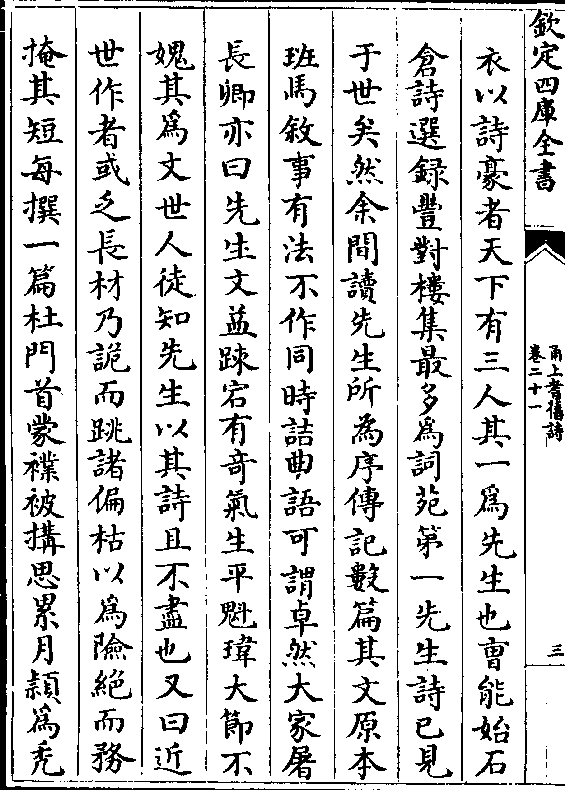 欽定四庫全書
甬上耆舊詩
卷二十一
三
衣以詩豪者天下有三人其一為先生也曹能始石
倉詩選録豐對樓集最多為詞苑第一先生詩已見
于世矣然余間讀先生所為序傳記數篇其文原本
班馬敘事有法不作同時詰曲語可謂卓然大家屠
長卿亦曰先生文益踈宕有竒氣生平魁瑋大節不
媿其為文世人徒知先生以其詩且不盡也又曰近
世作者或乏長材乃詭而跳諸偏枯以為險絶而務
掩其短每撰一篇杜門首蒙襆被搆思累月頴為秃